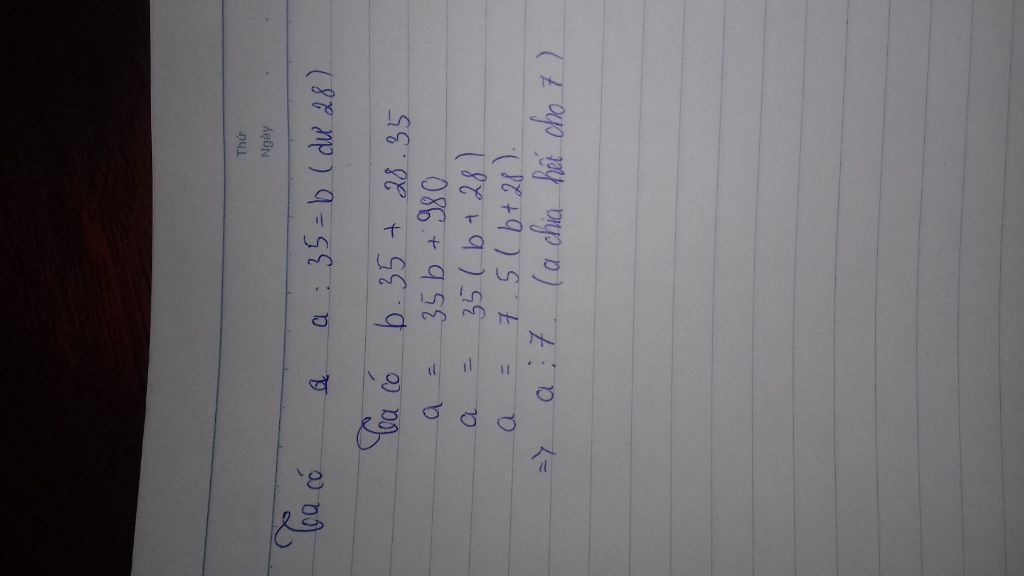 Thứ
Ngày
Ta có a a : 35 = b (dư 28)
Ta có b . 35 + 28 . 35
a = 35 b + 980
a = 35 ( b + 28 )
a = 7 . 5 ( b + 28 ).
=> a ⋮ 7 . (a chia hết cho 7)